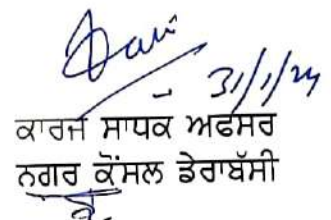 31/1/24
ਕਾਰਜ ਸਾਧਕ ਅਫਸਰ
ਨਗਰ ਕੌਂਸਲ ਡੇਰਾਬੱਸੀ